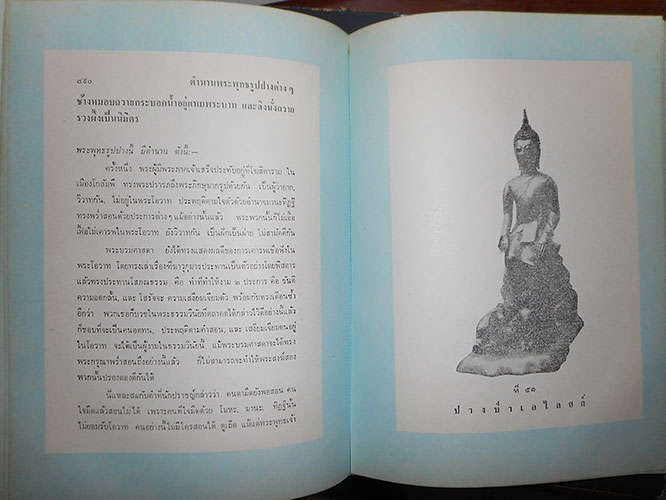 ๔๕๐ ตำนานพระพุทธรูปปางต่าง ๆ
ช้างหมอบถวายกระบอกน้ำอยู่แทบพระบาท และลิงนั่งถวาย
รวงผึ้งเป็นนิมิตร
พระพุทธรูปปางนี้ มีตำนาน ดังนี้:—
ครั้งหนึ่ง พระผู้มีพระภาคเจ้าเสร็จประทับอยู่ที่โฆสิตาราม ใน
เมืองโกสัมพี ทรงพระปรารภถึงพระภิกษุมากรูปด้วยกัน เป็นผู้ว่ายาก,
วิวาทกัน, ไม่อยู่ในพระโอวาท ประพฤติตามใจตัวด้วยอำนาจมานะทิฏฐิ
ทรงพร่ำสอนด้วยประการต่าง ๆ แม้อย่างนั้นแล้ว พระพวกนั้นก็ไม่เอื้อ
เฟื้อไม่เคารพในพระโอวาท ยังวิวาทกัน เป็นฝักเป็นฝ่าย ไม่สามัคคีกัน
พระบรมศาสดา ยังได้ทรงแสดงผลดีของการเคารพเชื่อฟังใน
พระโอวาท โดยทรงเล่าเรื่องฑีฆาวุกุมารประทานเป็นตัวอย่างโดยพิสดาร
แล้วทรงประทานโสภณธรรม คือ ทำที่ทำให้งาม ๒ ประการ คือ ขันติ
ความอดกลั้น, และ โสรัจจะ ความเสงี่ยมเจียมตัว พร้อมกับทรงเตือนซ้ำ
อีกว่า พวกเธอก็บวชในพระธรรมวินัยที่ตถาคตได้กล่าวไว้ดีอย่างนี้แล้ว
ก็ชอบที่จะเป็นคนอดทน, ประพฤติตามคำสอน, และ เสงี่ยมเจียมตนอยู่
ในโอวาท จะได้เป็นผู้งามในธรรมวินัยนี้ แม้พระบรมศาสดาจะได้ทรง
พระกรุณาพร่ำสอนถึงอย่างนี้แล้ว ก็ไม่สามารถจะทำให้พระสงฆ์สอง
พวกนั้นปรองดองดีกันได้
นี่แหละสมกับคำที่นักปราชญ์กล่าวว่า คนตามืดยังพอสอน คน
ใจมืดแล้วสอนไม่ได้ เพราะคนที่ใจมืดด้วย โมหะ, มานะ, ทิฏฐินั้น
ไม่ยอมรับโอวาท คนอย่างนี้ไม่มีใครสอนได้ ดูเถิด แม้แต่พระพุทธเจ้า
ที่ ๕๑
ปางป่าเลไลยก์